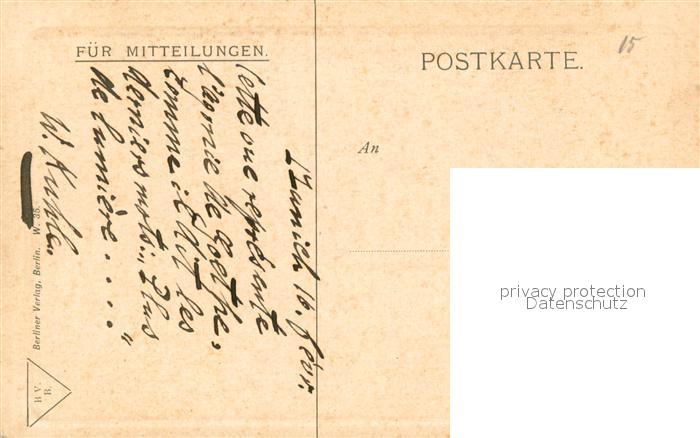 FÜR MITTEILUNGEN.
POSTKARTE.
15
An
Zurich 16 févr.
Cette vue représente
l'agonie de Goethe,
comme il dit les
derniers mots: „Plus
de lumière...."
W. Kuhle.
Berliner Verlag, Berlin. W. 35.
B V.
B.
privacy protection
Datenschutz